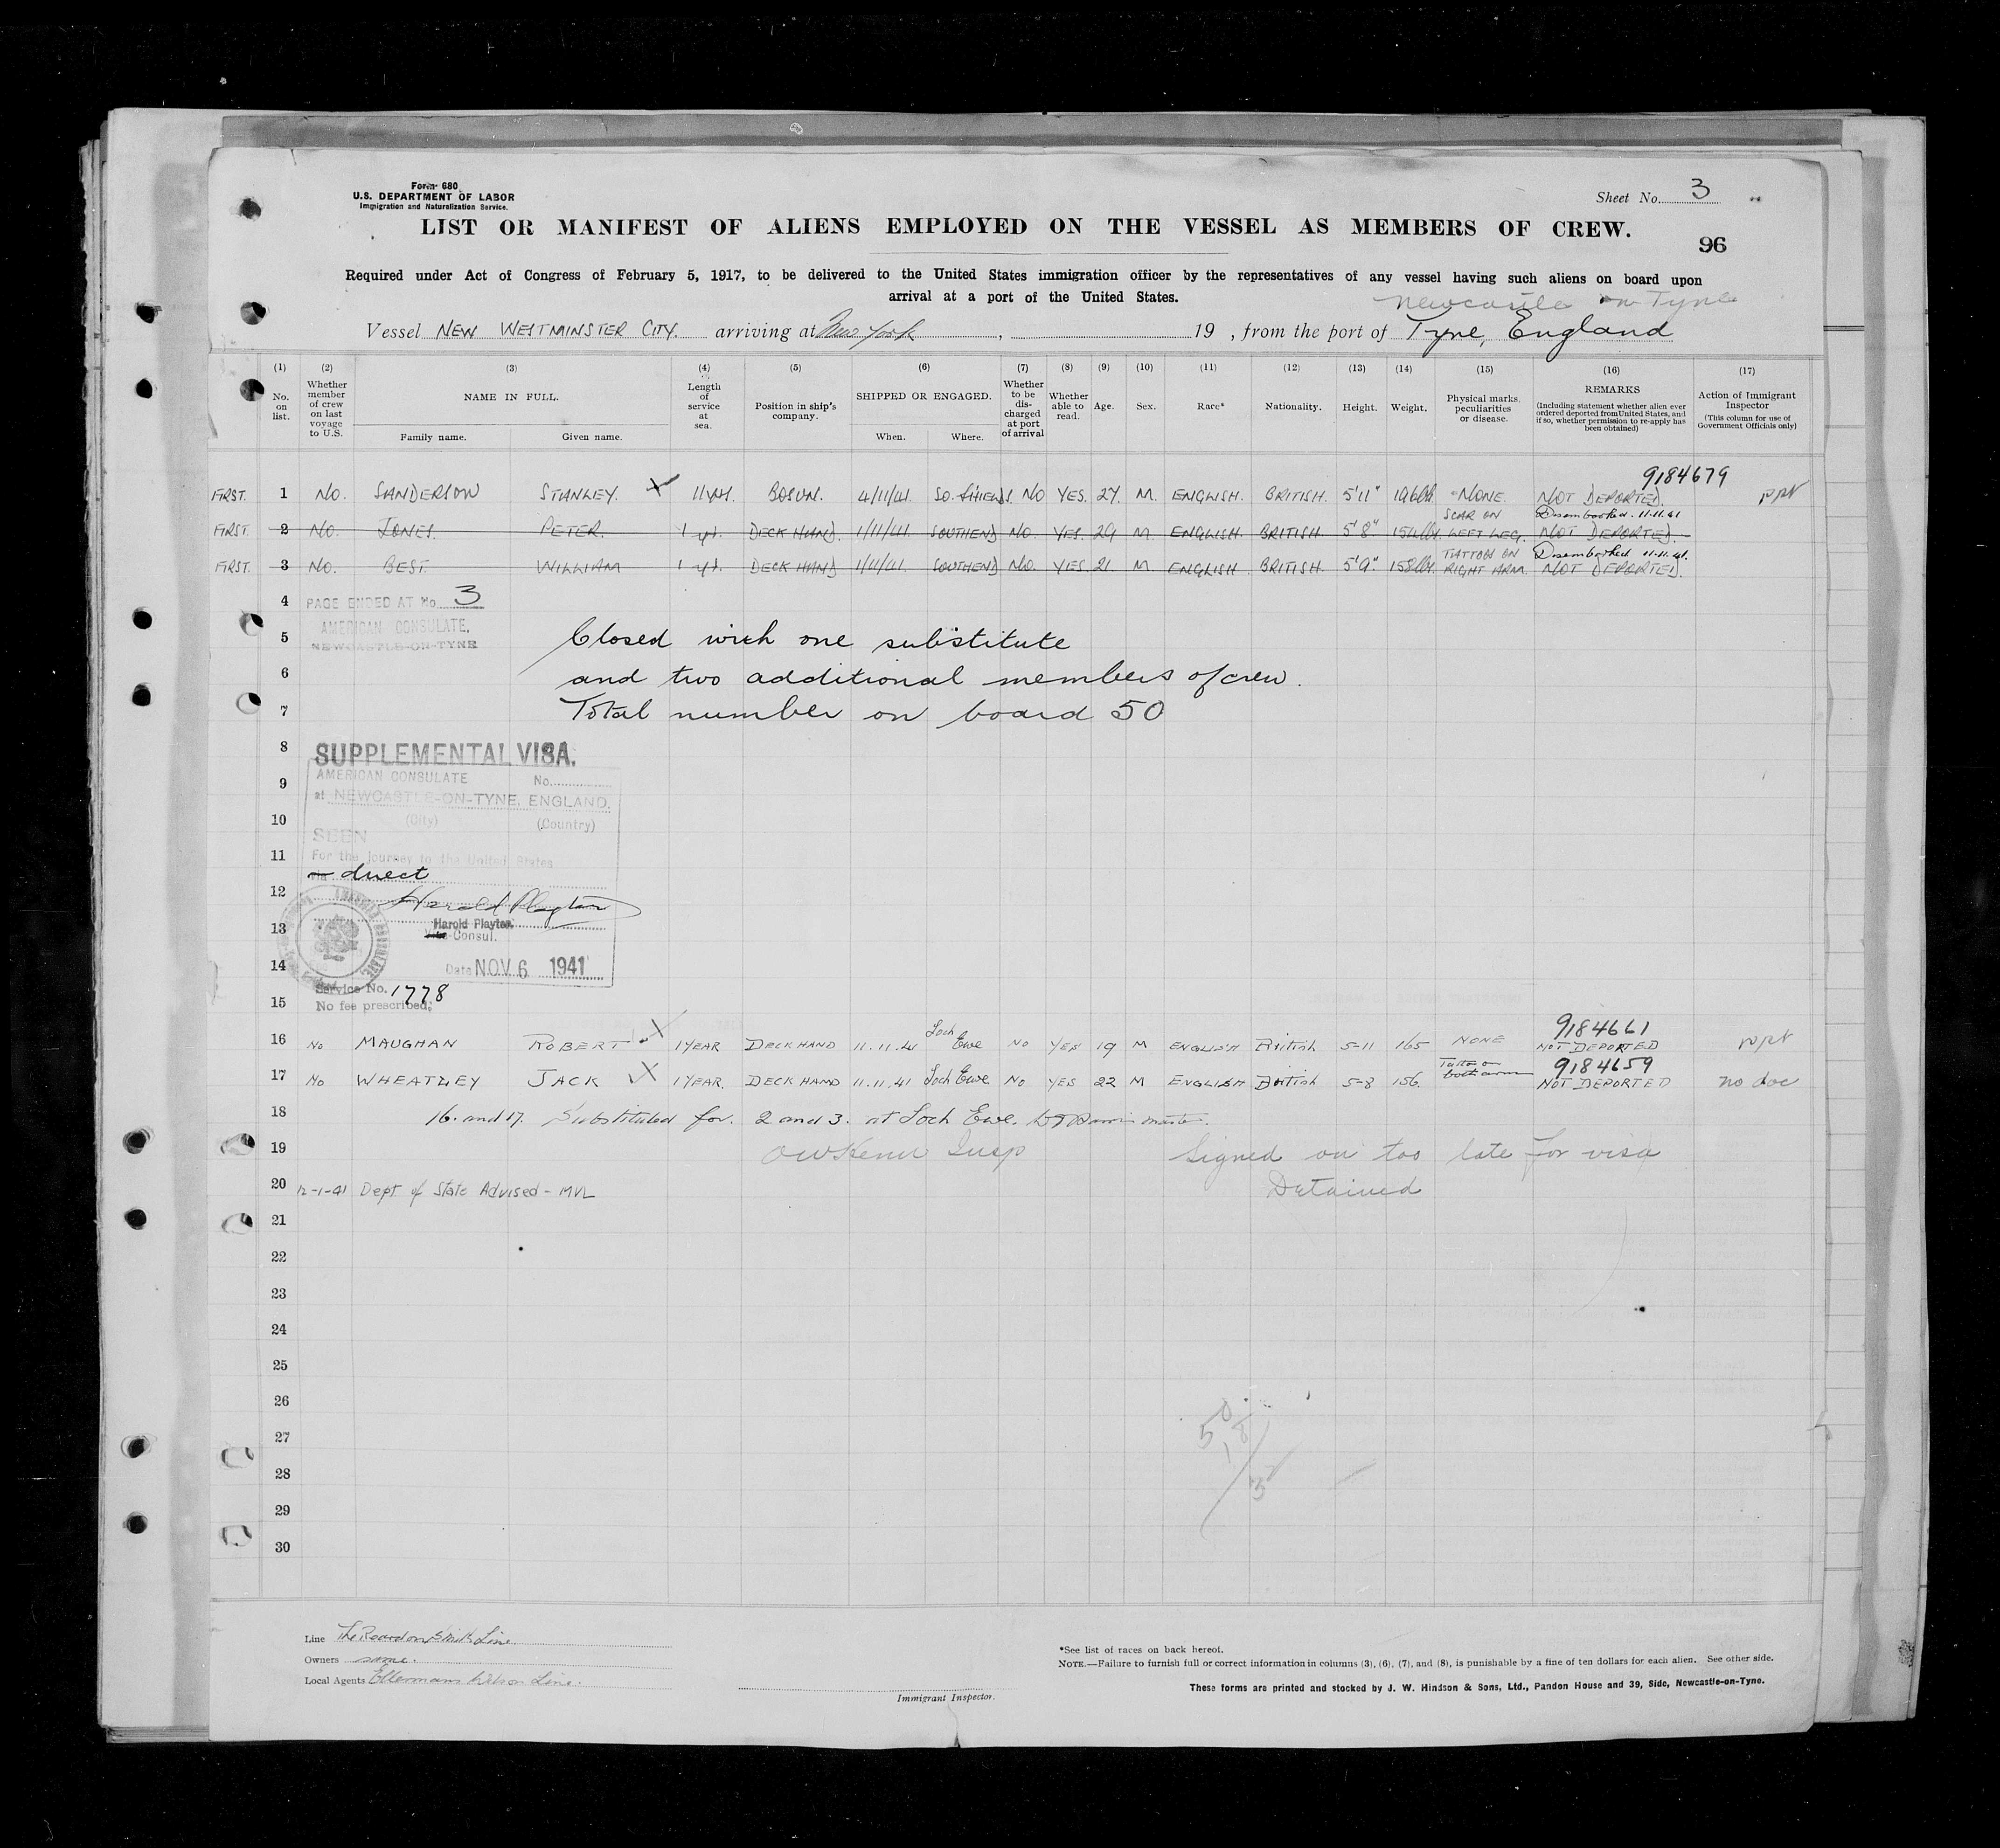 Form 680
U.S. DEPARTMENT OF LABOR
Immigration and Naturalization Service.
Sheet No. 3
LIST OR MANIFEST OF ALIENS EMPLOYED ON THE VESSEL AS MEMBERS OF CREW.
96
Required under Act of Congress of February 5, 1917, to be delivered to the United States immigration officer by the representatives of any vessel having such aliens on board upon
arrival at a port of the United States.
Newcastle on Tyne
Vessel NEW WESTMINSTER CITY. arriving at New York, 19 , from the port of Tyne, England
(1) (2) (3) (4) (5) (6) (7) (8) (9) (10) (11) (12) (13) (14) (15) (16) (17)
No. on list.
Whether member of crew on last voyage to U.S.
NAME IN FULL.
Family name. Given name.
Length of service at sea.
Position in ship's company.
SHIPPED OR ENGAGED.
When. Where.
Whether to be discharged at port of arrival
Whether able to read.
Age. Sex. Race* Nationality. Height. Weight.
Physical marks, peculiarities or disease.
REMARKS
(Including statement whether alien ever ordered deported from United States, and if so, whether permission to re-apply has been obtained)
Action of Immigrant Inspector
(This column for use of Government Officials only)
9184679
FIRST. 1 NO. SANDERSON STANLEY. X 11 yrs. BOSUN. 4/11/41. SO. SHIELDS. NO YES. 27. M. ENGLISH. BRITISH. 5'11" 196lbs NONE. NOT DEPORTED. PPT
SCAR ON Disembarked 11.11.41
FIRST. 2 NO. JONES. PETER. 1 yr. DECK HAND. 1/11/41. SOUTHEND NO. YES. 29 M. ENGLISH. BRITISH. 5'8" 154lbs. LEFT LEG. NOT DEPORTED.
TATTOO ON Disembarked 11.11.41.
FIRST. 3 NO. BEST. WILLIAM 1 yr. DECK HAND 1/11/41. SOUTHEND NO. YES. 21. M. ENGLISH. BRITISH. 5'9". 158lbs. RIGHT ARM. NOT DEPORTED.
4 PAGE ENDED AT No 3
AMERICAN CONSULATE,
NEWCASTLE-ON-TYNE
5 Closed with one substitute
6 and two additional members of crew.
7 Total number on board 50
8 SUPPLEMENTAL VISA.
AMERICAN CONSULATE No.
9 at NEWCASTLE-ON-TYNE, ENGLAND.
10 (City) (Country)
SEEN
11 For the journey to the United States
via direct
12 Harold Playter
Harold Playter.
13 Vice-Consul.
14 Date NOV 6 1941
Service No. 1778
15 No fee prescribed.
9184661
16 No MAUGHAN ROBERT X 1 YEAR DECK HAND 11.11.41 Loch Ewe NO YES 19 M ENGLISH British 5-11 165 NONE NOT DEPORTED PPT
9184659
17 No WHEATLEY JACK X 1 YEAR. DECK HAND 11.11.41 Loch Ewe NO YES 22 M ENGLISH British 5-8 156. Tattoo both arm NOT DEPORTED no doc
18 16. and 17. Substituted for. 2 and 3. at Loch Ewe. master.
19 Insp Signed on too late for visa
20 12-1-41 Dept of State Advised - MVL Detained
21
22
23
24
25
26
27
28
29
30
Line The Reardon Smith Line
Owners same.
Local Agents Ellermans Wilson Line.
Immigrant Inspector.
*See list of races on back hereof.
NOTE.—Failure to furnish full or correct information in columns (3), (6), (7), and (8), is punishable by a fine of ten dollars for each alien. See other side.
These forms are printed and stocked by J. W. Hindson & Sons, Ltd., Pandon House and 39, Side, Newcastle-on-Tyne.